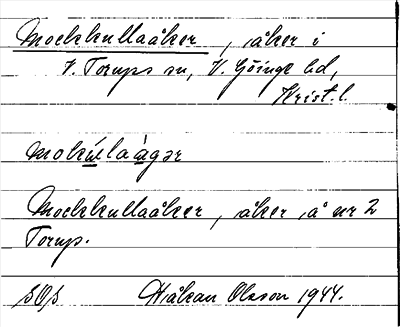 Mockkullaåker, åker i
V. Torups sn, V. Göinge hd,
Krist. l.
mokúlaàgər
Mockkullaåker, åker å nr 2
Torup.
Håkan Olsson 1944.